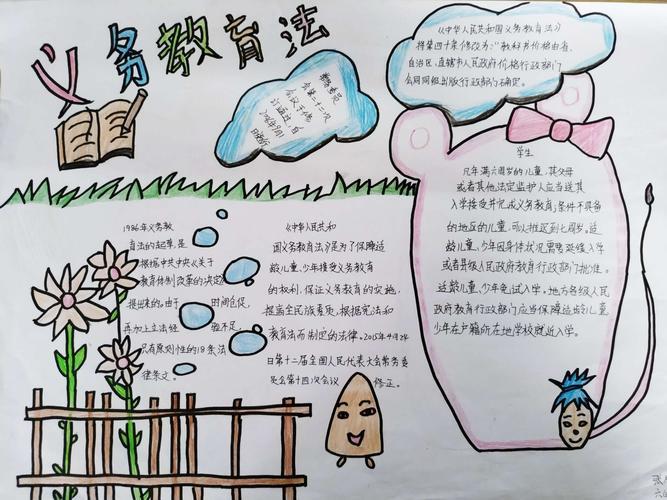 义务教育法
常务委员
会第二十二次
会议于修
订通过,自
《中华人民共和国义务教育法》
将第四十条修改为:“教科书价格由省、
自治区、直辖市人民政府价格行政部门
会同同级出版行政部门确定。
学生
凡年满六周岁的儿童,其父母
或者其他法定监护人应当送其
入学接受并完成义务教育;条件不具备
的地区的儿童,可以推迟到七周岁。适
龄儿童、少年因身体状况需要延缓入学
或者县级人民政府教育行政部门批准。
适龄儿童、少年免试入学。地方各级人民
政府教育行政部门应当保障适龄儿童
少年在户籍所在地学校就近入学。
1986年义务教
育法的起草,是
根据中共中央《关于
教育体制改革的决定》
提出来的。由于 时间仓促,
再加上立法经 验不足,
只有原则性的18条法
律条文。
《中华人民共和
国义务教育法》是为了保障适
龄儿童、少年接受义务教育
的权利,保证义务教育的实施,
提高全民族素质,根据宪法和
教育法而制定的法律。2015年4月24
日第十二届全国人民代表大会常务委
员会第十四次会议 修正。